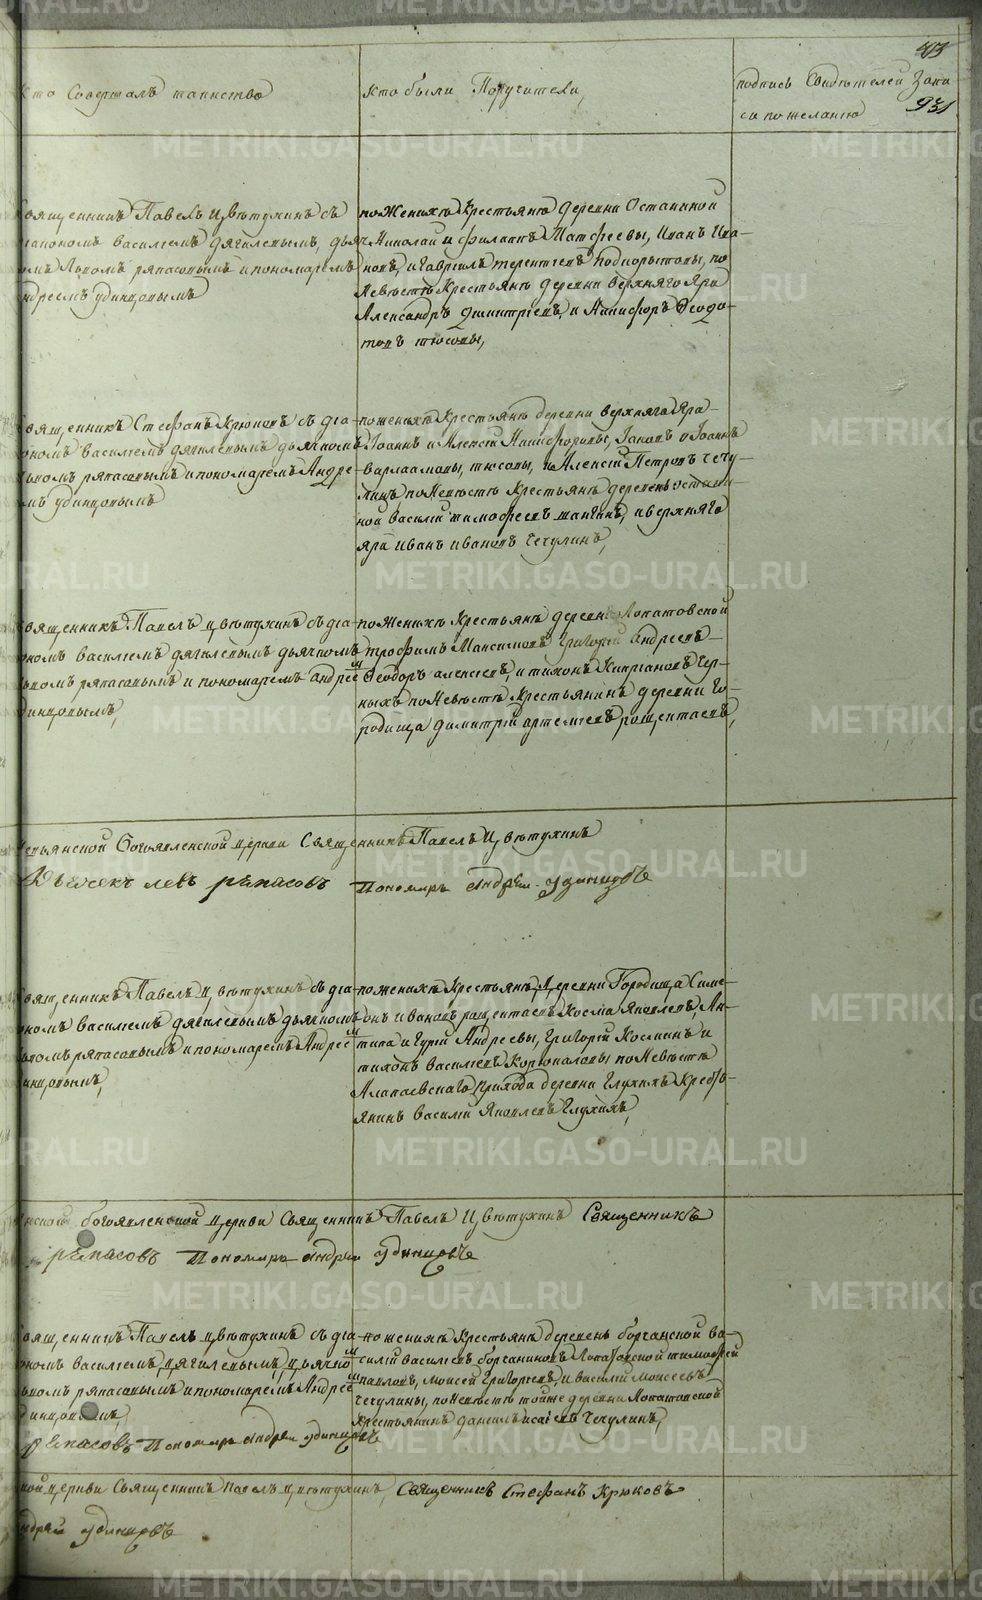 Кто Совершалъ таинство
Кто были Поручители,
подпись Свидѣтелей Запи
си по желанію
931
священникъ Павелъ Цвѣтухинъ съ
діакономъ василіемъ дягилевымъ, дьяч
омъ Львомъ ряпасовымъ и пономаремъ
ндреемъ удинцовымъ
по Женихѣ Крестьяне деревни Останиной
Николай и филиппъ Матфеевы, Иванъ Ива-
новъ, и Гавріилъ терентьевъ Подкорытовы, по
Невѣстѣ Крестьяне деревни верхняго Яра
Александръ Димитріевъ, и Никифоръ Ѳеодо-
товъ тюсовы,
священникъ Стефанъ Крюковъ съ діа-
кономъ василіемъ дягилевымъ дьячкомъ
Львомъ ряпасовымъ и пономаремъ Андре-
емъ удинцовымъ
по женихѣ Крестьяне деревни верхняго Яра
Іоаннъ и Алексій Никифоровы, Іаковъ и Іоаннъ
варлаамовы, тюсовы, и Алексій Петровъ чечу-
линъ по Невѣстѣ Крестьяне деревень остани-
ной василій тимофеевъ шангинъ, и верхняго
яра иванъ ивановъ Чечулинъ,
священникъ Павелъ цвѣтухинъ съ діа-
кономъ василіемъ дягилевымъ дьячкомъ
Львомъ ряпасовымъ и пономаремъ андрее
удинцовымъ,
по Женихѣ Крестьяне деревни Лопатовской
трофимъ Максимовъ Григорій андреевъ
Ѳеодоръ алексіевъ, и тихонъ Кипріановъ Чер-
ныхъ по Невѣстѣ Крестьянинъ деревни Го-
родища димитрій артеміевъ рощектаевъ,
Богоявленской церкви Священникъ Павелъ Цвѣтухинъ
Дьячекъ левъ ряпасовъ Пономарь андрей удинцовъ
священникъ Павелъ Цвѣтухинъ съ діа-
кономъ василіемъ дягилевымъ дьячкомъ
Львомъ ряпасовымъ и пономаремъ Андрее
удинцовымъ,
по женихѣ Крестьяне, Деревни Городища Симе-
онъ ивановъ рощектаевъ Косма Яковлевъ, Ан-
типа и Гурій Андреевы, Григорій Косминъ и
тихонъ василіевъ Корюкаловы по Невѣстѣ
Алапаевскаго прихода деревни Глухихъ Кресть-
янинъ василій Яковлевъ Глухихъ,
богоявленской церкви Священникъ Павелъ Цвѣтухинъ Священникъ
ряпасовъ Пономарь андрей удинцовъ
священникъ Павелъ цвѣтухинъ съ діа-
кономъ василіемъ дягилевымъ, дьячко
Львомъ ряпасовымъ и пономаремъ Андрее
удинцовымъ,
по женихѣ Крестьяне деревень борчанской ва-
силій василіевъ борчаниновъ Лопатовской тимофей
павловъ, моисей Григорьевъ, и василій Моисеевъ
чечулины, по Невѣстѣ той же деревни Лопатовской
крестьянинъ даніилъ исаіевъ Чечулинъ,
ряпасовъ Пономарь андрей удинцовъ
церкви Священникъ Павелъ цвѣтухинъ, Священникъ Стефанъ Крюковъ
ндрей удинцовъ
METRIKI.GASO-URAL.RU